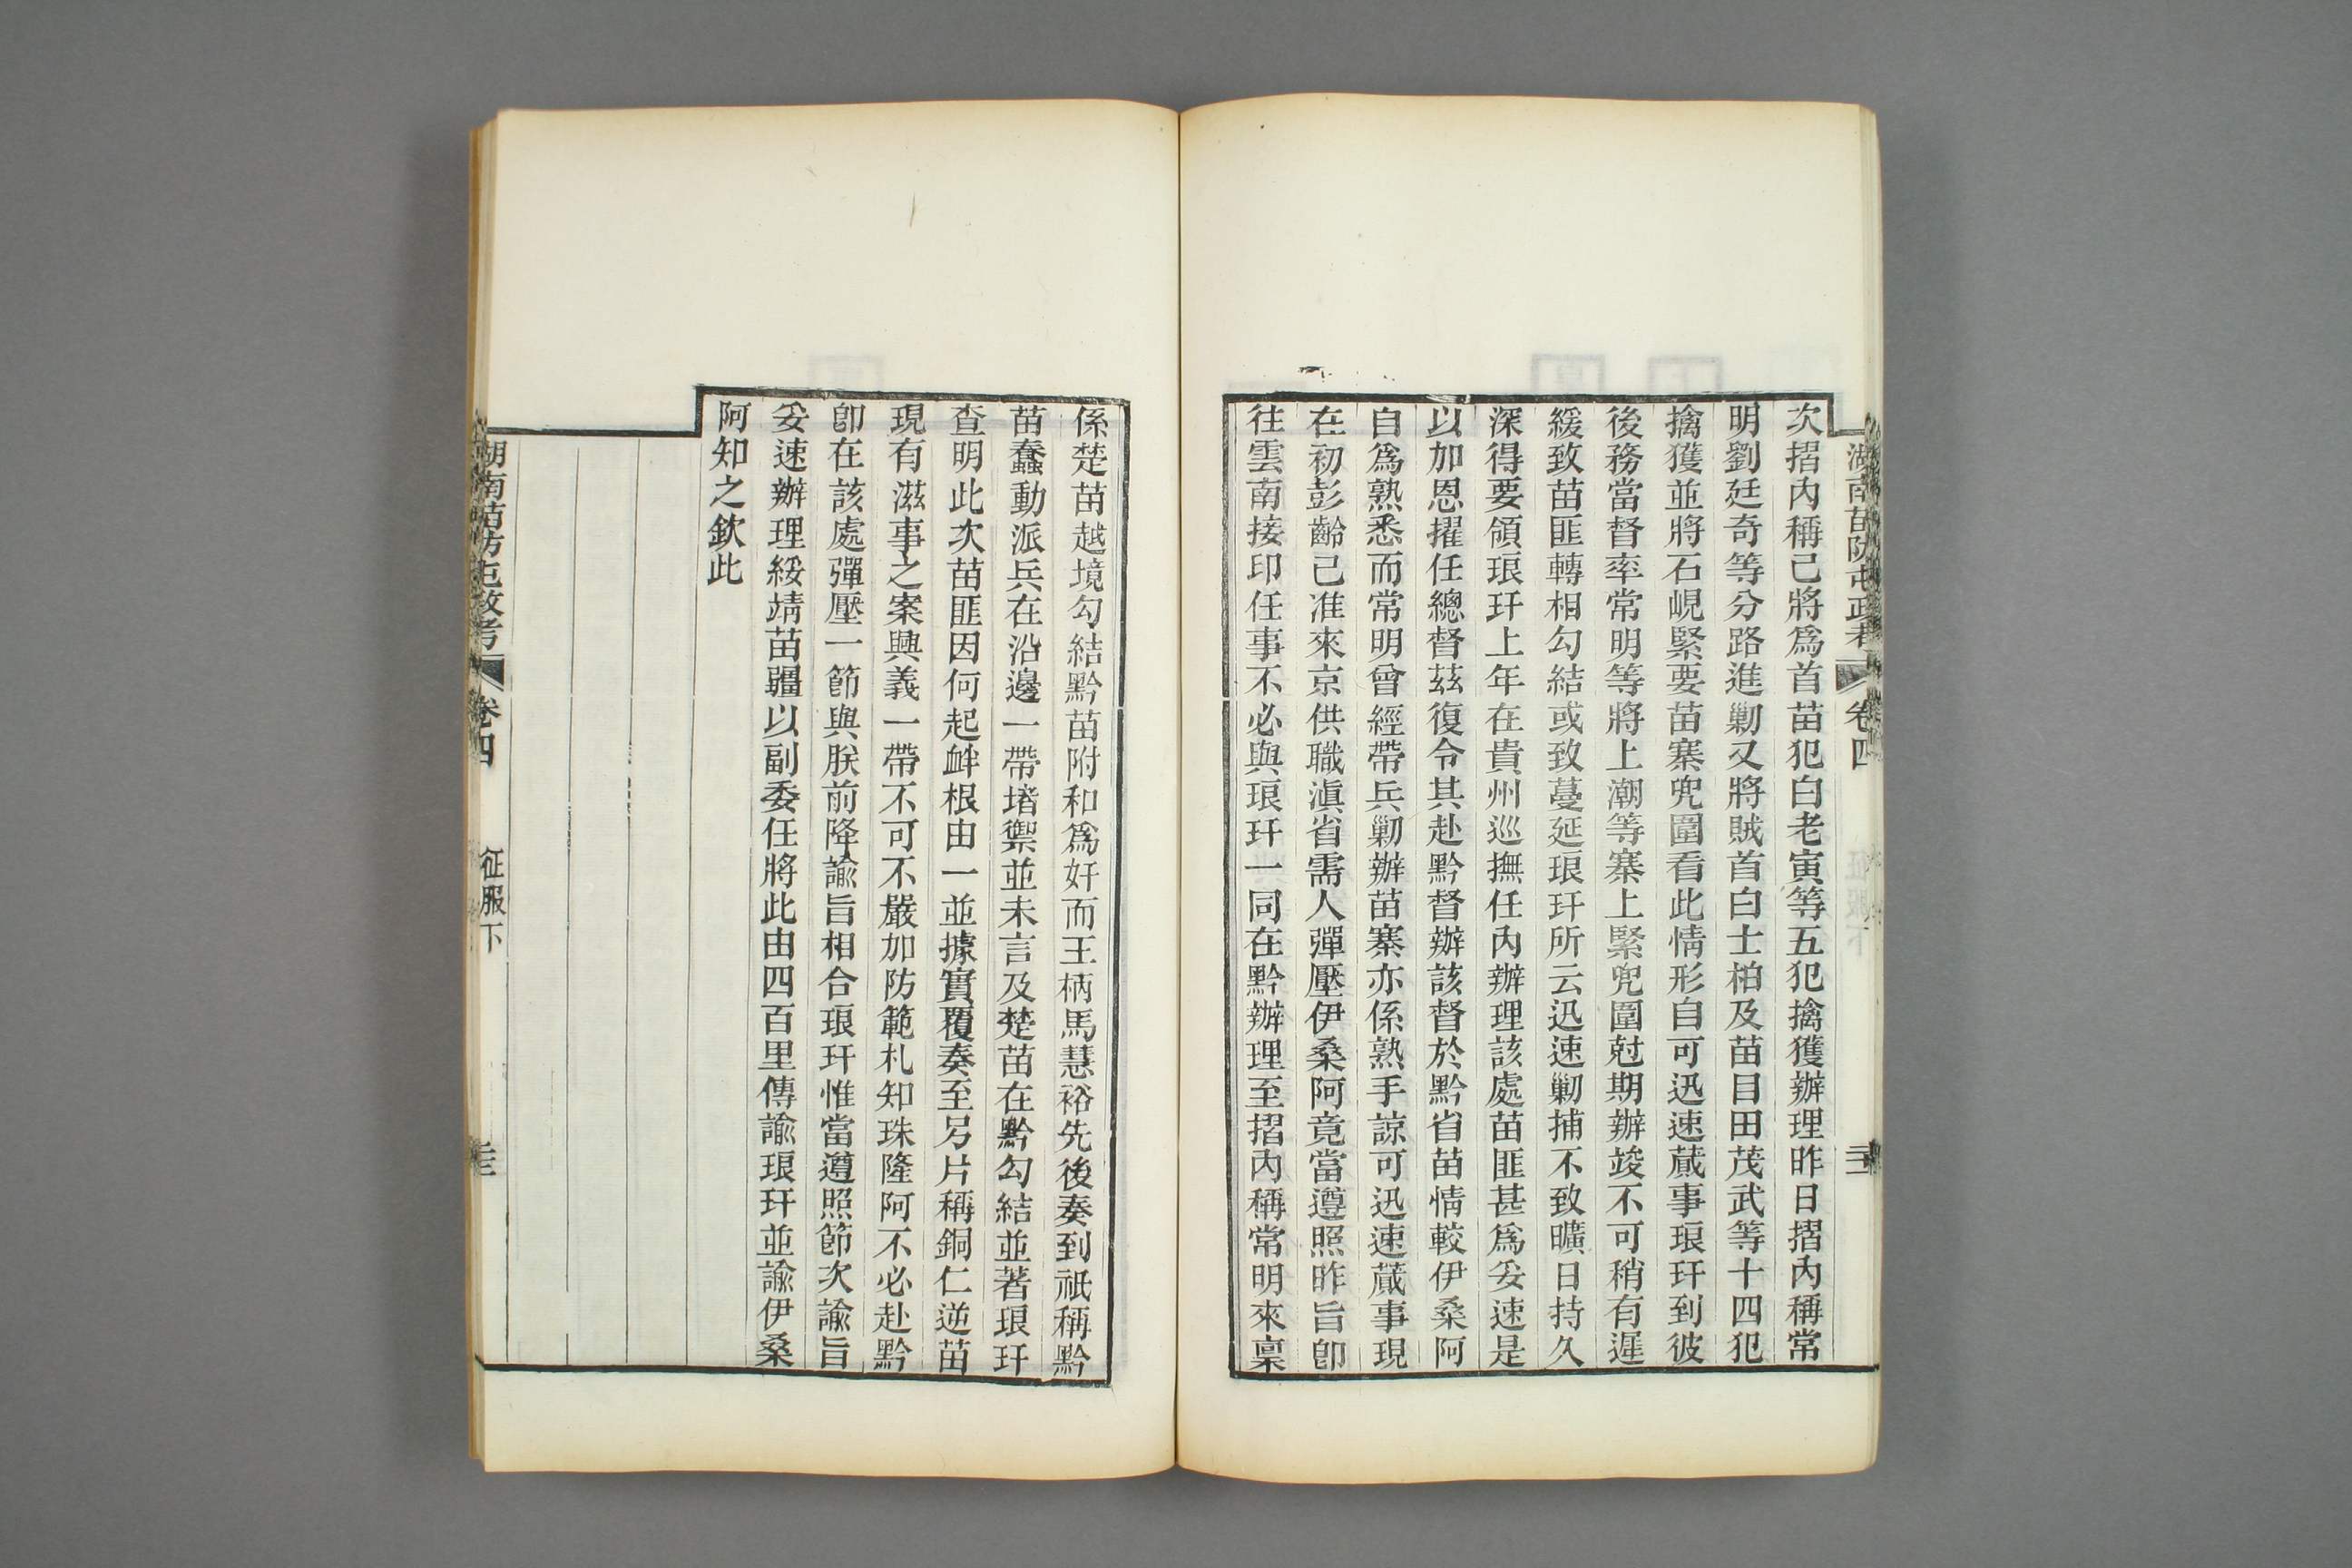 湖南苗防屯政考 卷四
次摺內稱已將爲首苗犯白老寅等五犯擒獲辦理昨日摺內稱常
明劉廷奇等分路進勦又將賊首白士柏及苗目田茂武等十四犯
擒獲並將石峴緊要苗寨兜圍看此情形自可迅速蕆事琅玕到彼
後務當督率常明等將上潮等寨上緊兜圍尅期辦竣不可稍有遲
緩致苗匪轉相勾結或致蔓延琅玕所云迅速勦捕不致曠日持久
深得要領琅玕上年在貴州巡撫任內辦理該處苗匪甚爲妥速是
以加恩擢任總督茲復令其赴黔督辦該督於黔省苗情較伊桑阿
自爲熟悉而常明曾經帶兵勦辦苗寨亦係熟手諒可迅速蕆事現
在初彭齡已准來京供職滇省需人彈壓伊桑阿竟當遵照昨旨卽
往雲南接印任事不必與琅玕一同在黔辦理至摺內稱常明來稟
係楚苗越境勾結黔苗附和爲奸而王柄馬慧裕先後奏到祇稱黔
苗蠢動派兵在沿邊一帶堵禦並未言及楚苗在黔勾結並著琅玕
查明此次苗匪因何起衅根由一並據實覆奏至另片稱銅仁逆苗
現有滋事之案興義一帶不可不嚴加防範札知珠隆阿不必赴黔
卽在該處彈壓一節與朕前降諭旨相合琅玕惟當遵照節次諭旨
妥速辦理綏靖苗疆以副委任將此由四百里傳諭琅玕並諭伊桑
阿知之欽此
湖南苗防屯政考 卷四 征服下